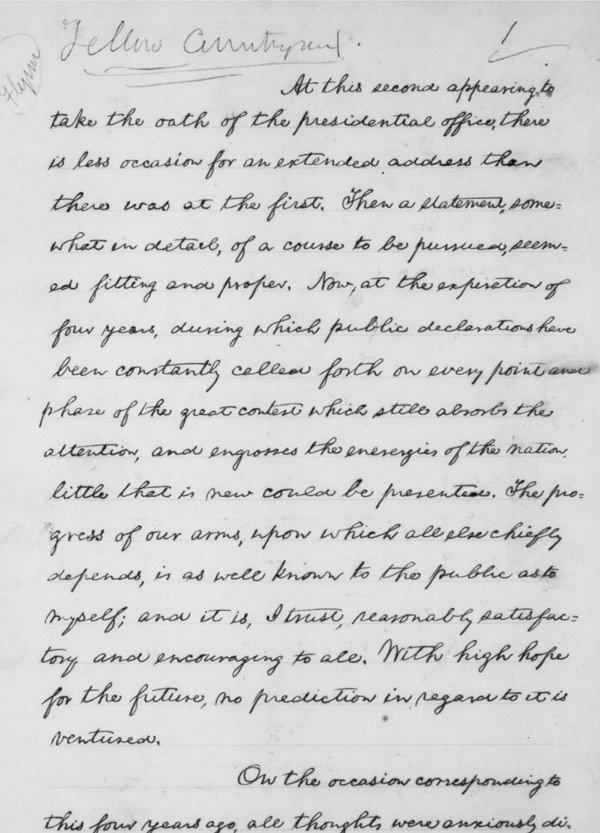 Fellow Countrymen.
1
Flynn
At this second appearing to
take the oath of the presidential office, there
is less occasion for an extended address than
there was at the first. Then a statement, some=
what in detail, of a course to be pursued, seem=
ed fitting and proper. Now, at the expiration of
four years, during which public declarations have
been constantly called forth on every point and
phase of the great contest which still absorbs the
attention, and engrosses the enerergies of the nation,
little that is new could be presented. The pro=
gress of our arms, upon which all else chiefly
depends, is as well known to the public as to
myself; and it is, I trust, reasonably satisfac=
tory and encouraging to all. With high hope
for the future, no prediction in regard to it is
ventured.
On the occasion corresponding to
this four years ago, all thoughts were anxiously di-